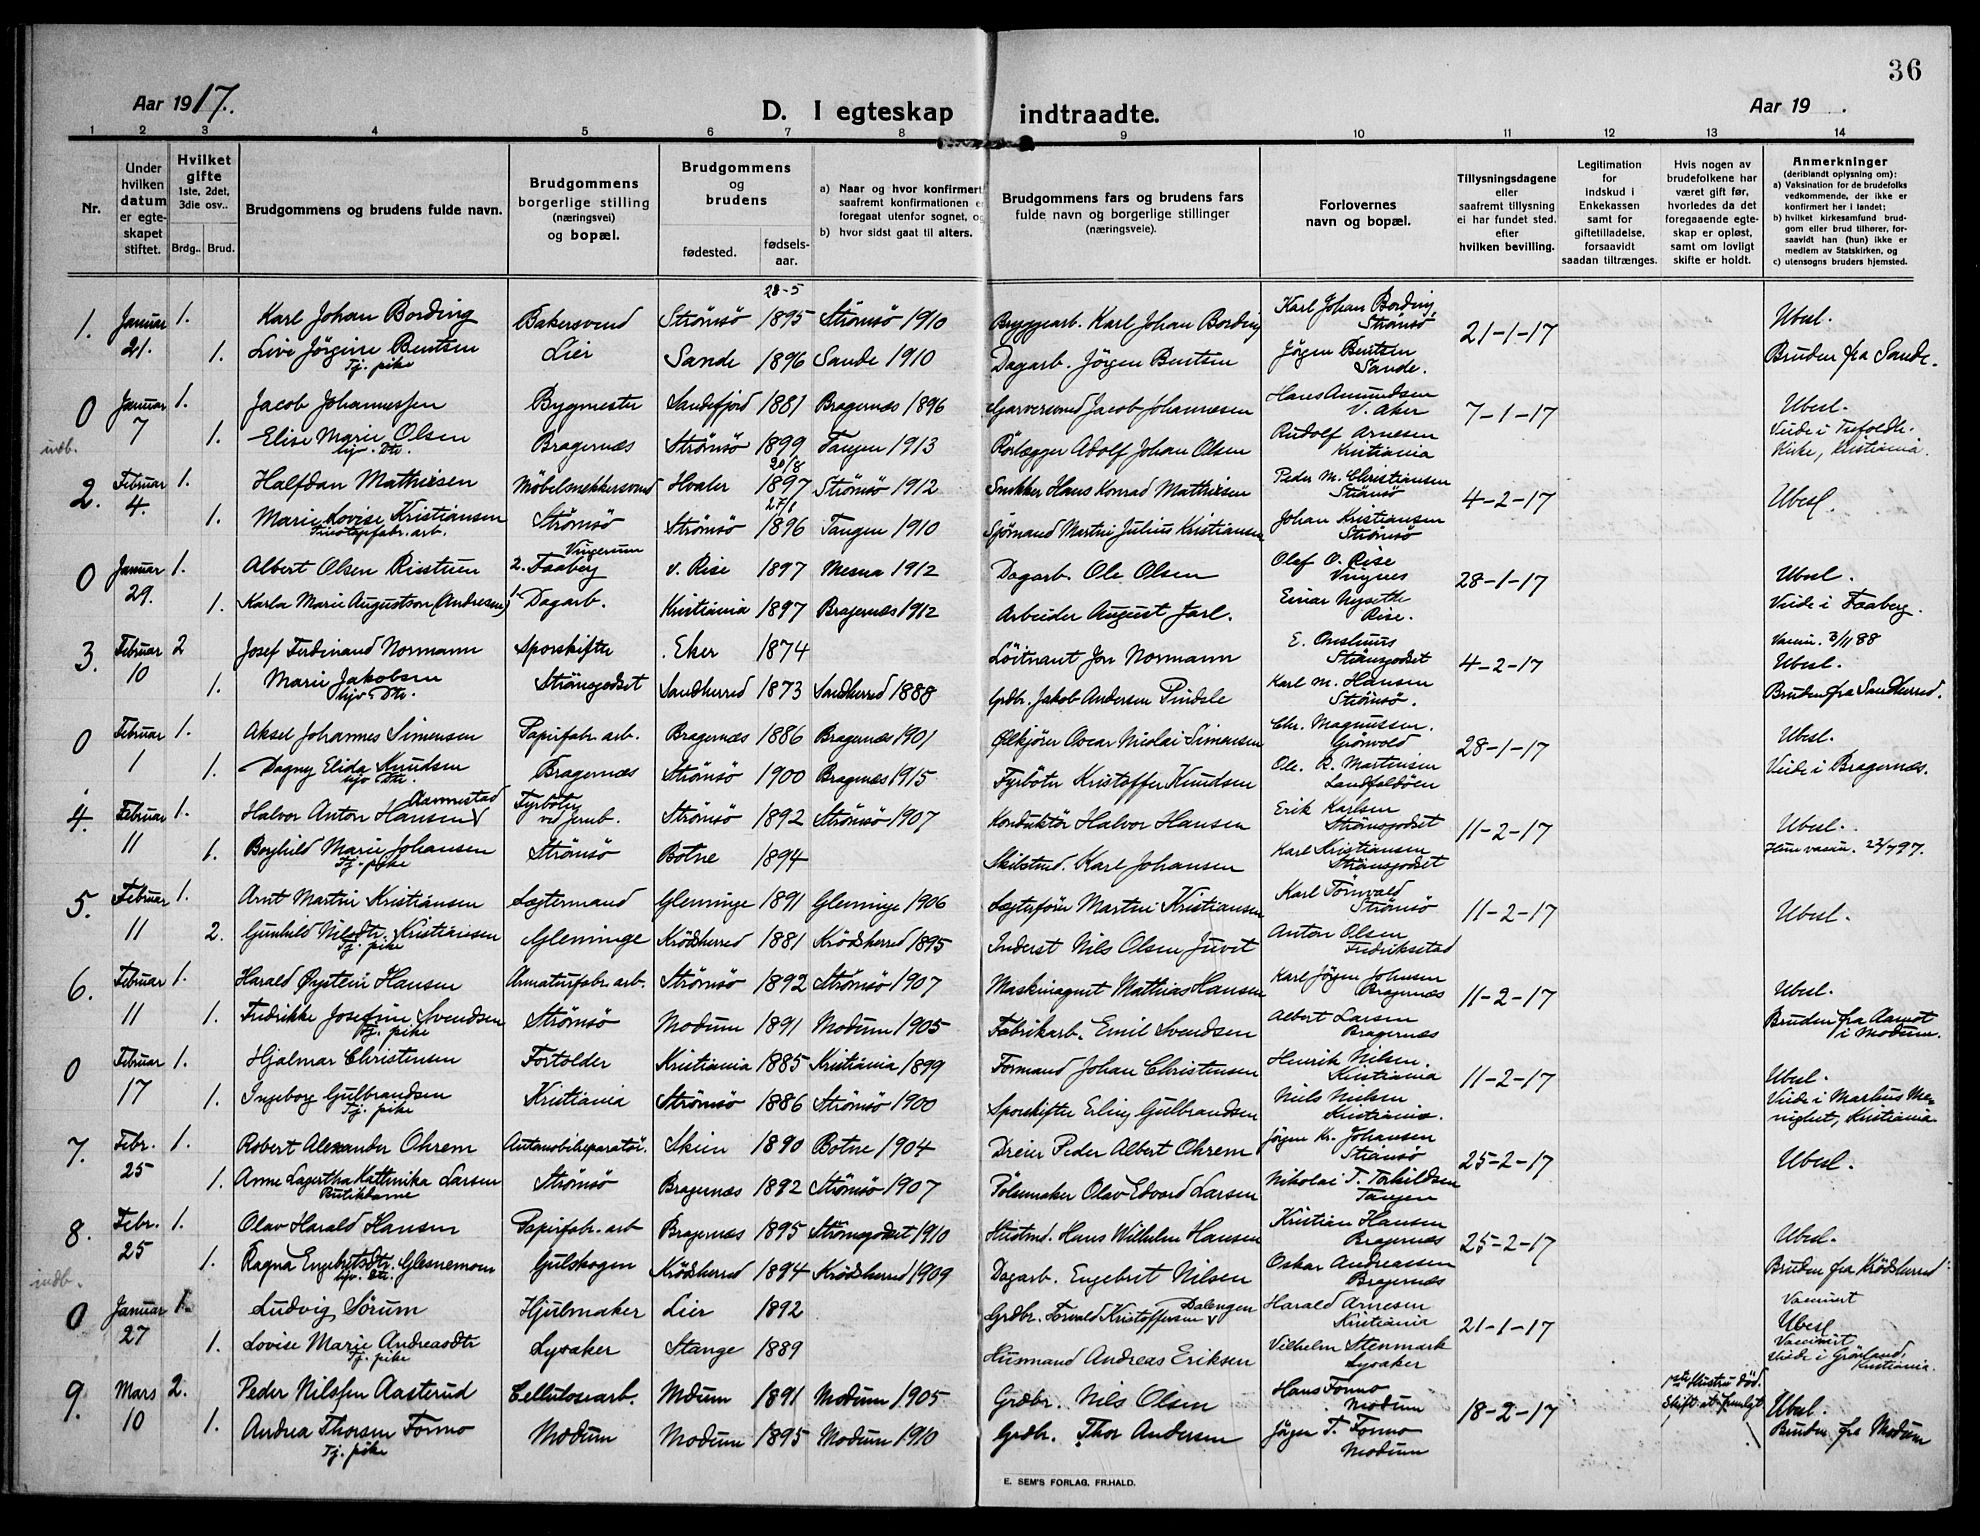 36
Aar 1917.
D. I egteskap indtraadte.
Aar 19 .
1 2 3 4 5 6 7 8 9 10 11 12 13 14
Nr.
Under hvilken datum er egteskapet stiftet.
Hvilket gifte 1ste, 2det, 3die osv..
Brdg.. Brud.
Brudgommens og brudens fulde navn.
Brudgommens borgerlige stilling (næringsvei) og bopæl.
Brudgommens og brudens
fødested. fødsels-aar.
a) Naar og hvor konfirmert saafremt konfirmationen er foregaat utenfor sognet, og
b) hvor sidst gaat til alters.
Brudgommens fars og brudens fars fulde navn og borgerlige stillinger (næringsveie).
Forlovernes navn og bopæl.
Tillysningsdagene eller saafremt tillysning ei har fundet sted. efter hvilken bevilling.
Legitimation for indskud i Enkekassen samt for giftetilladelse, forsaavidt saadan tiltrænges.
Hvis nogen av brudefolkene har været gift før, hvorledes da det foregaaende egteskap er opløst, samt om lovligt skifte er holdt.
Anmerkninger (deriblandt oplysning om):
a) Vaksination for de brudefolks vedkommende, der ikke er konfirmert her i landet;
b) hvilket kirkesamfund brudgom eller brud tilhører, forsaavidt han (hun) ikke er medlem av Statskirken, og
c) utensogns bruders hjemsted.
28-5
1. Januar 1. Karl Johan Bording Bakersvend Strømsö 1895 Strømsö 1910 Bryggearb. Karl Johan Bording Karl Johan Bording, Strømsö 21-1-17 Ubesl.
21. 1. Live Jörgine Bentsen Tj. pike Lier Sande 1896 Sande 1910 Dagarb. Jörgen Bentsen Jörgen Bentsen Sande. Bruden fra Sande.
0 Januar 1. Jacob Johannessen Bygmester Sandefjord 1881 Bragernæs 1896 Garversvend Jacob Johannesen Hans Amundsen V. Aker 7-1-17 Ubesl.
indb. 7 1. Elise Marie Olsen hjv. Dtr. Bragernæs Strömsö 1899 Tangen 1913 Rörlægger Adolf Johan Olsen Rudolf Arnesen Kristiania Viede i Trefoldh. Kirke, Kristiania.
20/8
2. Februar 1. Halfdan Mathisen Möbelsnekkersvend Hvaler 1897 Strømsö 1912 Snekker Hans Konrad Mathisen Peder M. Christiansen Strömsö 4-2-17 Ubesl.
4. 1. Marie Lovise Kristiansen Strømsö Strømsö 1896 Tangen 1910 Sjömand Martin Julius Kristiansen Johan Kristiansen Strømsö
0 Januar 1. Albert Olsen Riestuen 2. Faaberg v. Rise 1897 Mesna 1912 Dagarb. Ole Olsen Olaf O. Rise 28-1-17 Ubesl.
29. 1. Karla Marie Augustson (Andresen) 1. Dagarb. Kristiania 1897 Bragernæs 1912 Arbeider August Jarl. Einar Nyseth Rise. Viede i Faaberg.
3. Februar 2 Josef Ferdinand Normann Sporskifter Eker 1874 Löitnant Jon Normann E. Onshuus Strömsgodset 4-2-17 Vaccin. 3/11 88 Ubesl.
10 1. Marie Jakobsen hjv. Dtr. Strömsgodset Sandherred 1873 Sandherred 1888 Grdbr. Jakob Andersen Pindsle Karl M. Hansen Strömsö. Bruden fra Sandherred.
0 Februar 1. Aksel Johannes Simensen Papirfabr. arb. Bragernæs 1886 Bragernæs 1901 Ölkjörer Oscar Nicolai Simensen Chr. Magnussen. Grönvold 28-1-17 Ubesl.
1 1. Dagny Elida Knudsen hjv. Dtr. Bragernæs Strömsö 1900 Bragernæs 1915 Fyrböter Kristoffer Knudsen Ole. R. Martinsen Landfaldöen Viede i Bragernæs.
4. Februar 1. Halvor Anton Hansen Aamestad Fyrböter ved jernb. Strömsö 1892 Strömsö 1907 Konduktör Halvor Hansen Erik Karlsen Strömsgodset 11-2-17 Ubesl.
11 1. Borghild Marie Johansen Tj. pike Strömsö Botne 1894 Skibstmd. Karl Johansen Karl Kristiansen Strömsgodset Hun vaccin. 22/7 97.
5. Februar 1. Arnt Martin Kristiansen Lægtermand Glemminge 1891 Glemminge 1906 Lægterförer Martin Kristiansen Karl Törnvald Strömsö 11-2-17 Ubesl.
11 2. Gunhild Nilsdtr. Kristiansen Tj. pike Glemminge Krödsherred 1881 Krödsherred 1895 Inderst Nils Olsen Juvet Anton Olsen Fredriksstad
6. Februar 1. Harald Öystein Hansen Armaturfabr. arb. Strömsö 1892 Strömsö 1907 Maskinagent Mathias Hansen Karl Jörgen Johnsen Bragernæs 11-2-17 Ubesl.
11 1. Fredrikke Josefine Svendsen Tj. pike Strömsö Modum 1891 Modum 1905 Fabrikarb. Emil Svendsen Albert Larsen Bragernæs Bruden fra Aamot i Modum.
0 Februar 1. Hjalmar Christensen Fortolder Kristiania 1885 Kristiania 1899 Formand Johan Christensen Henrik Nilsen. Kristiania 11-2-17 Ubesl.
17 1. Ingeborg Gulbrandsen Tj. pike Kristiania Strömsö 1886 Strömsö 1900 Sporskifter Erling Gulbrandsen Niels Nielsen Kristiania. Viede i Markus Menighet, Kristiania
7. Febr. 1. Robert Alexander Ohrem Automobilreparatör. Skien 1890 Botne 1904 Dreier Peder Albert Ohrem Jörgen Kr. Johansen Strömsö 25-2-17 Ubesl.
25 1. Anne Lagertha Kathinka Larsen Butikdame Strömsö Bragernæs 1892 Strömsö 1907 Pölsemaker Olav Edvard Larsen Nikolai T. Torkildsen Tangen
8. Febr. 1. Olav Harald Hansen Papirfabr. arb Bragernæs 1895 Strömsgodset 1910 Hans Wilhelm Hansen Kristian Hansen Bragernæs 25-2-17 Ubesl.
25 1. Ragna Engebretsdtr. Glesnemoen hjv. Dtr. Gulskogen Krödsherred 1894 Krödsherred 1909 Dagarb. Engebret Nilsen Oskar Andreassen Bragernæs Bruden fra Krödsherred
indb.
0 Januar 1. Ludvig Sörum Hjulmaker Lier 1892 Grdbr. Torvald Kristoffersen Dalengen Harald Arnesen Kristiania 21-1-17 Vaccinert Ubesl
27 1. Lovise Marie Andreasdtr Tj. pike Lysaker Stange 1889 Husmand Andreas Eriksen Vilhelm Stenmark Lysaker Vaccinert Viede i Grönland, Kristiania.
9. Mars 2. Peder Nilssen Aasterud Cellulosearb. Modum 1891 Modum 1905 Grdbr. Nils Olsen Hans Formo Modum 18-2-17 Hustru död. Ubesl.
10 1. Andrea Thorsen Formo Tj. pike Modum Modum 1895 Modum 1910 Grdbr. Thor Andersen Jörgen T. Formo Modum Bruden fra Modum
E. SEM'S FORLAG, FR.HALD.